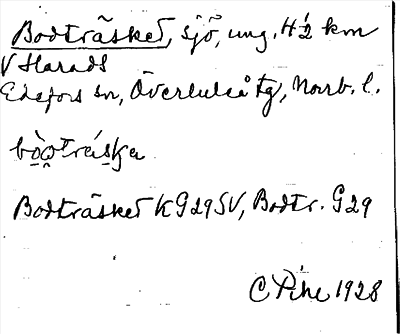 Bodträsket, sjö, ung. 4½ km
V Harads
Edefors sn, Överluleå tg, Norrb. l.
Bodträsket K G29SV, Bodtr. G29
C Pihe 1928